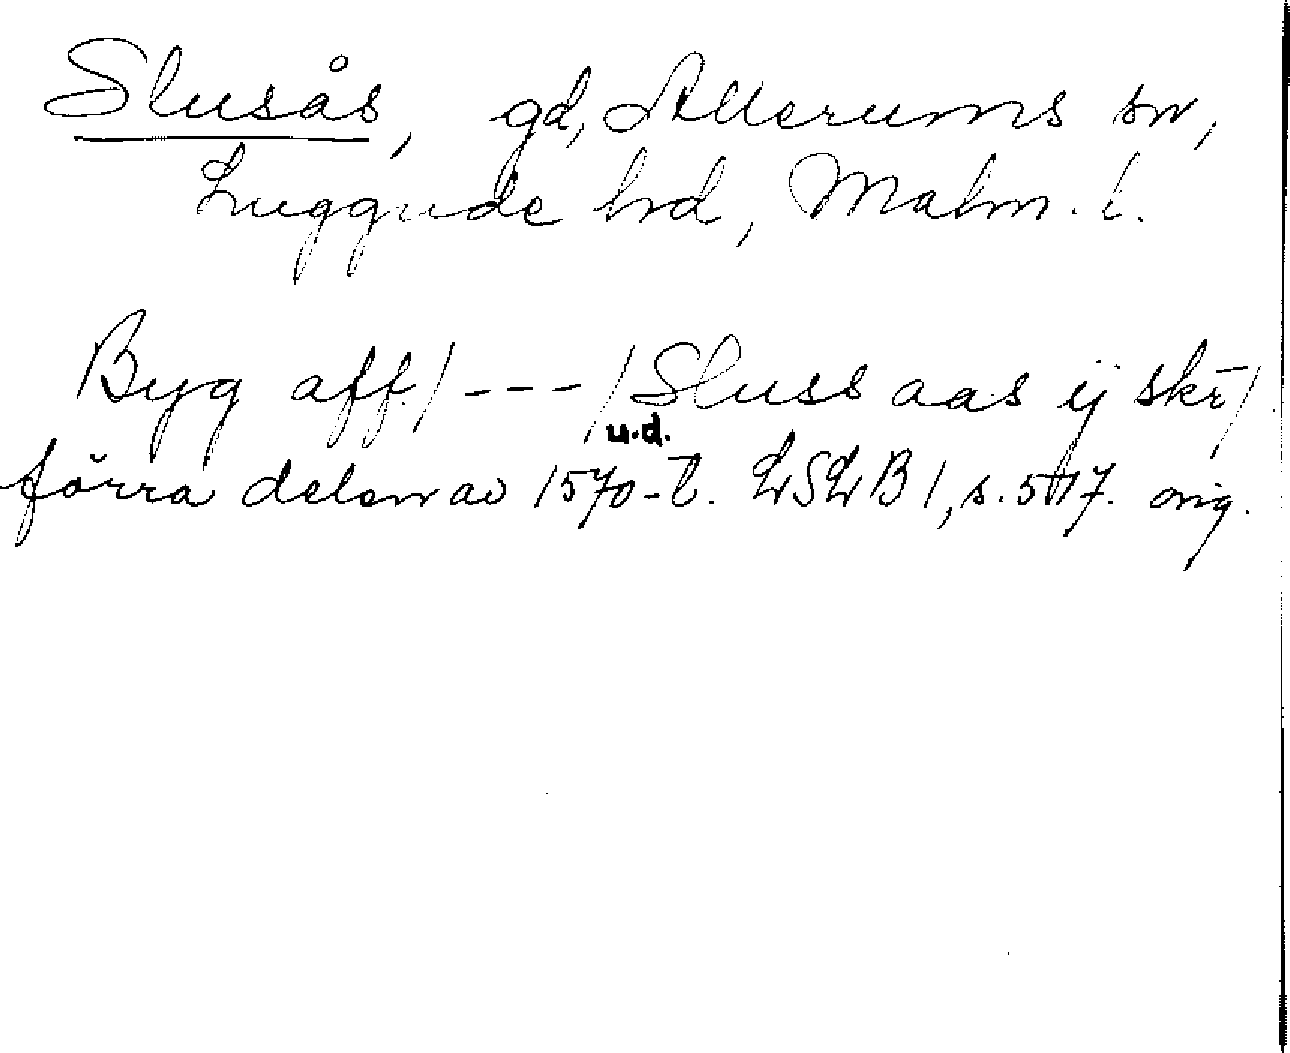 Slusås, gd, Allerums sn,
Luggude hrd, Malm. l.
Byg aff./---/Sluss aas ij skr̄/
u.d.
förra delen av 1570-t. LSLB1, s. 517. orig.